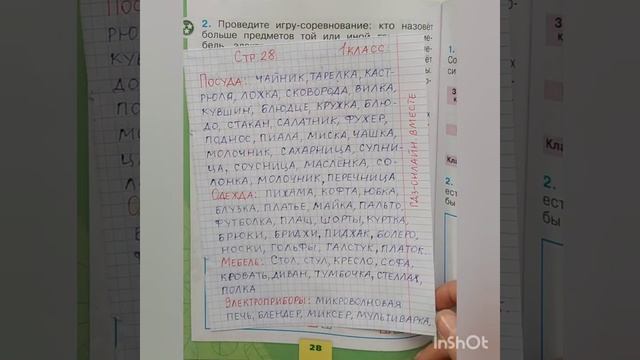 2. Проведите игру-соревнование: кто назовёт
больше предметов той или иной
СТР. 28 1 КЛАСС
ПОСУДА: ЧАЙНИК, ТАРЕЛКА, КАСТ-
РЮЛЯ, ЛОЖКА, СКОВОРОДА, ВИЛКА,
КУВШИН, БЛЮДЦЕ, КРУЖКА, БЛЮ-
ДО, СТАКАН, САЛАТНИК, ФУЖЕР,
ПОДНОС, ПИАЛА, МИСКА, ЧАШКА,
МОЛОЧНИК, САХАРНИЦА, СУПНИ-
ЦА, СОУСНИЦА, МАСЛЕНКА, СО-
ЛОНКА, МОЛОЧНИК, ПЕРЕЧНИЦА
ОДЕЖДА: ПИЖАМА, КОФТА, ЮБКА,
БЛУЗКА, ПЛАТЬЕ, МАЙКА, ПАЛЬТО,
ФУТБОЛКА, ПЛАЩ, ШОРТЫ, КУРТКА,
БРЮКИ, БРИДЖИ, ПИДЖАК, БОЛЕРО,
НОСКИ, ГОЛЬФЫ, ГАЛСТУК, ПЛАТОК.
МЕБЕЛЬ: СТОЛ, СТУЛ, КРЕСЛО, СОФА,
КРОВАТЬ, ДИВАН, ТУМБОЧКА, СТЕЛЛАХ,
ПОЛКА
ЭЛЕКТРОПРИБОРЫ: МИКРОВОЛНОВАЯ
ПЕЧЬ, БЛЕНДЕР, МИКСЕР, МУЛЬТИВАРКА,
ГДЗ-ОНЛАЙН ВМЕСТЕ
28
1.
2.
ест
бы
InShOt